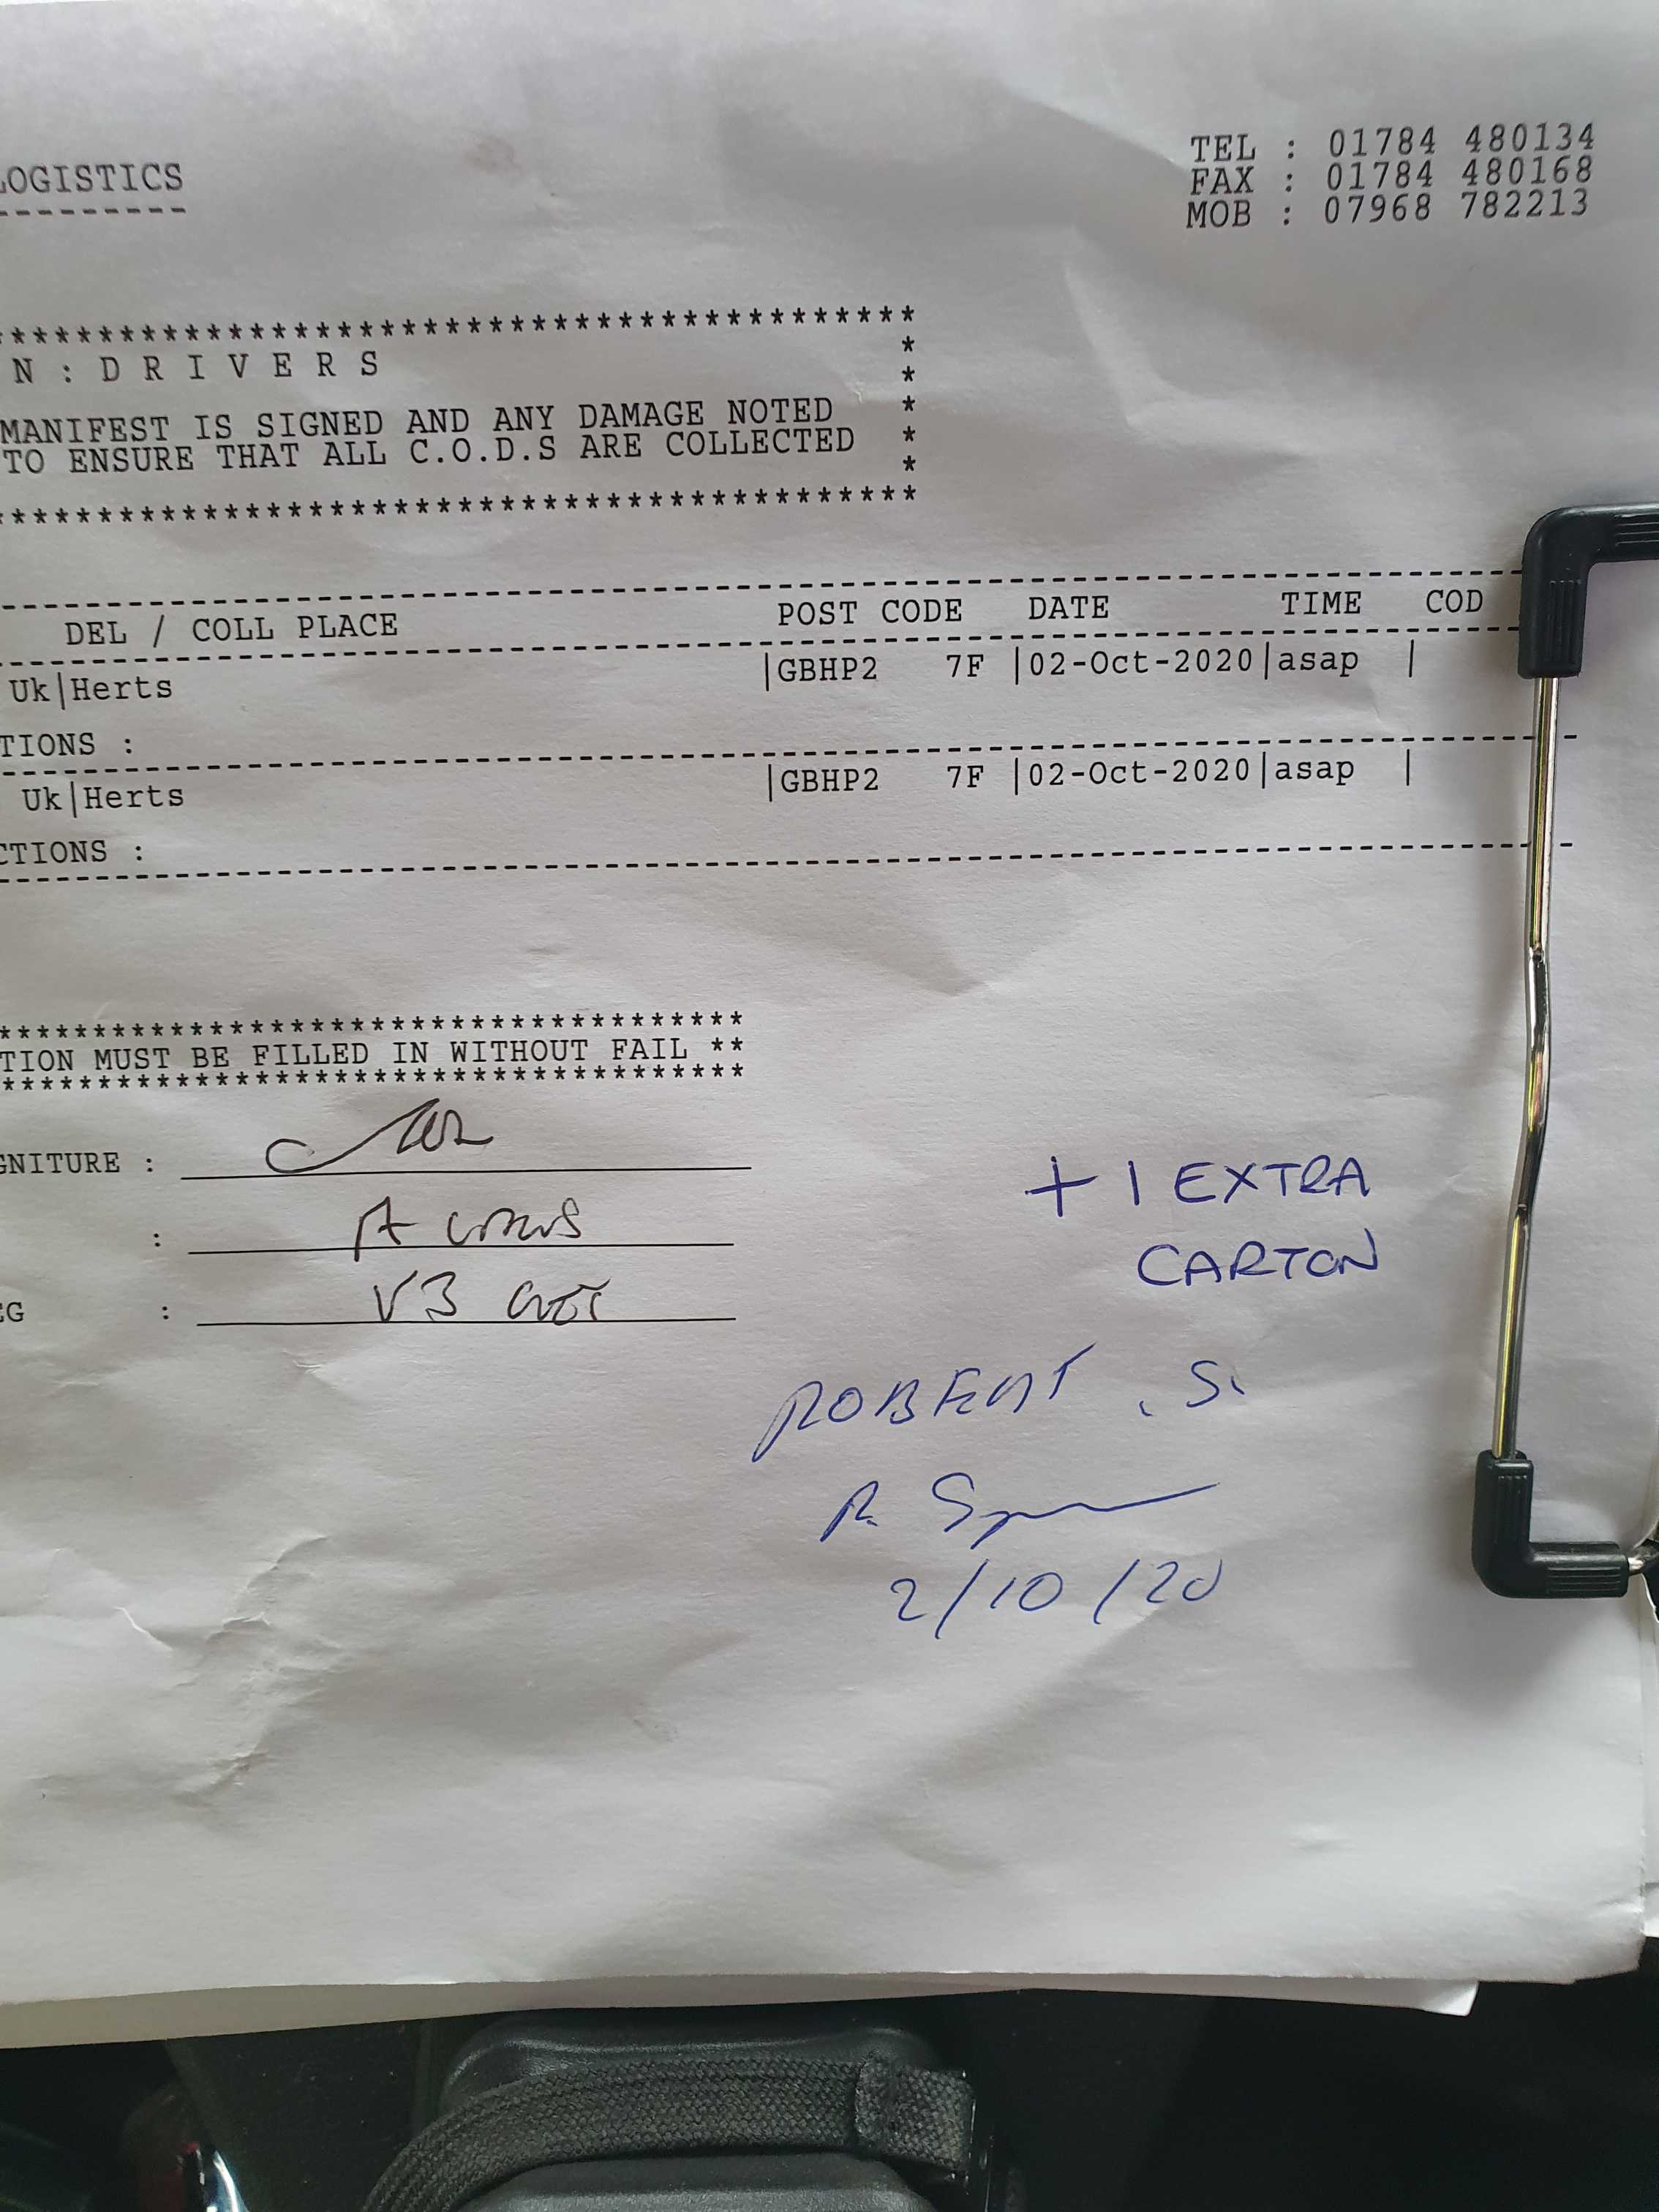 LOGISTICS
TEL : 01784 480134
FAX : 01784 480168
MOB : 07968 782213
---------
*******************************************
N : D R I V E R S *
*
MANIFEST IS SIGNED AND ANY DAMAGE NOTED *
TO ENSURE THAT ALL C.O.D.S ARE COLLECTED *
*
*******************************************
DEL / COLL PLACE POST CODE DATE TIME COD
Uk|Herts |GBHP2 7F |02-Oct-2020|asap |
TIONS :
Uk|Herts |GBHP2 7F |02-Oct-2020|asap |
CTIONS :
***************************************
TION MUST BE FILLED IN WITHOUT FAIL **
***************************************
GNITURE :
: A
EG : V3
+ 1 EXTRA
CARTON
ROBERT . S.
R.
2/10/20